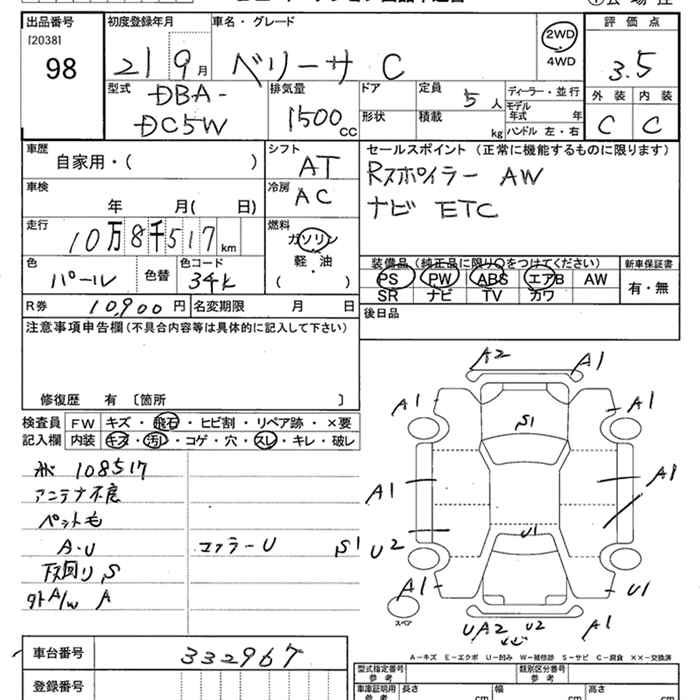 出品番号 初度登録年月 車名・グレード 評価点
[2038]
98 21 9月 ベリーサ C 2WD 4WD 3.5
型式 DBA-DC5W 排気量 1500CC ドア 定員 5人 ディーラー・並行
形状 積載 kg モデル年式 年
ハンドル 左・右
外装 内装
C C
車歴 自家用・( ) シフト AT
車検 年 月( 日) 冷房 AC
走行 10万8千517km 燃料 ガソリン
軽・油
( )
色 パール 色替 色コード 34K
R券 10,900円 名変期限 月 日
セールスポイント(正常に機能するものに限ります)
Rスポイラー AW
ナビ ETC
装備品(純正品に限り○をつけてください) 新車保証書
PS PW ABS エアB AW 有・無
SR ナビ TV カワ
後日品
注意事項申告欄(不具合内容等は具体的に記入して下さい)
修復歴 有 〔箇所 〕
検査員 FW キズ・飛石・ヒビ割・リペア跡・×要
記入欄 内装 キズ・汚れ・コゲ・穴・スレ・キレ・破レ
108517
アンテナ不良
ペット毛
A・U エプラーU S1
下回り S
外A/W A
A2 A1
A1 A1
S1
A1 A1
U2 U1
A1 U1
スペア
UA2 U2 A1
A-キズ E-エクボ U-凹み W-補修跡 S-サビ C-腐食 ××-交換済
車台番号 332967
登録番号
型式指定番号 参考 類別区分番号 参考
車庫証明用 参考 長さ cm 幅 cm 高さ cm